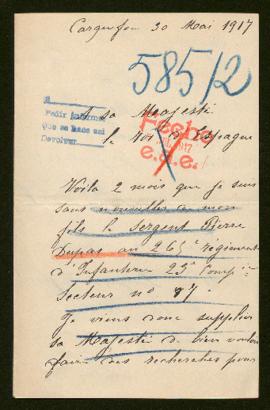 30 Mai 1917
585/2
A sa Majesté
le Roi d'Espagne
Pedir informes
que se hace así
Devolver
Fecho
Voilà 2 mois que je suis
sans nouvelles de mon
fils le Sergent Pierre
Dupas au 26e Régiment
d'Infanterie 25e Comp ie
Secteur no 87.
Je viens donc supplier
sa Majesté de bien vouloir
faire des recherches pour